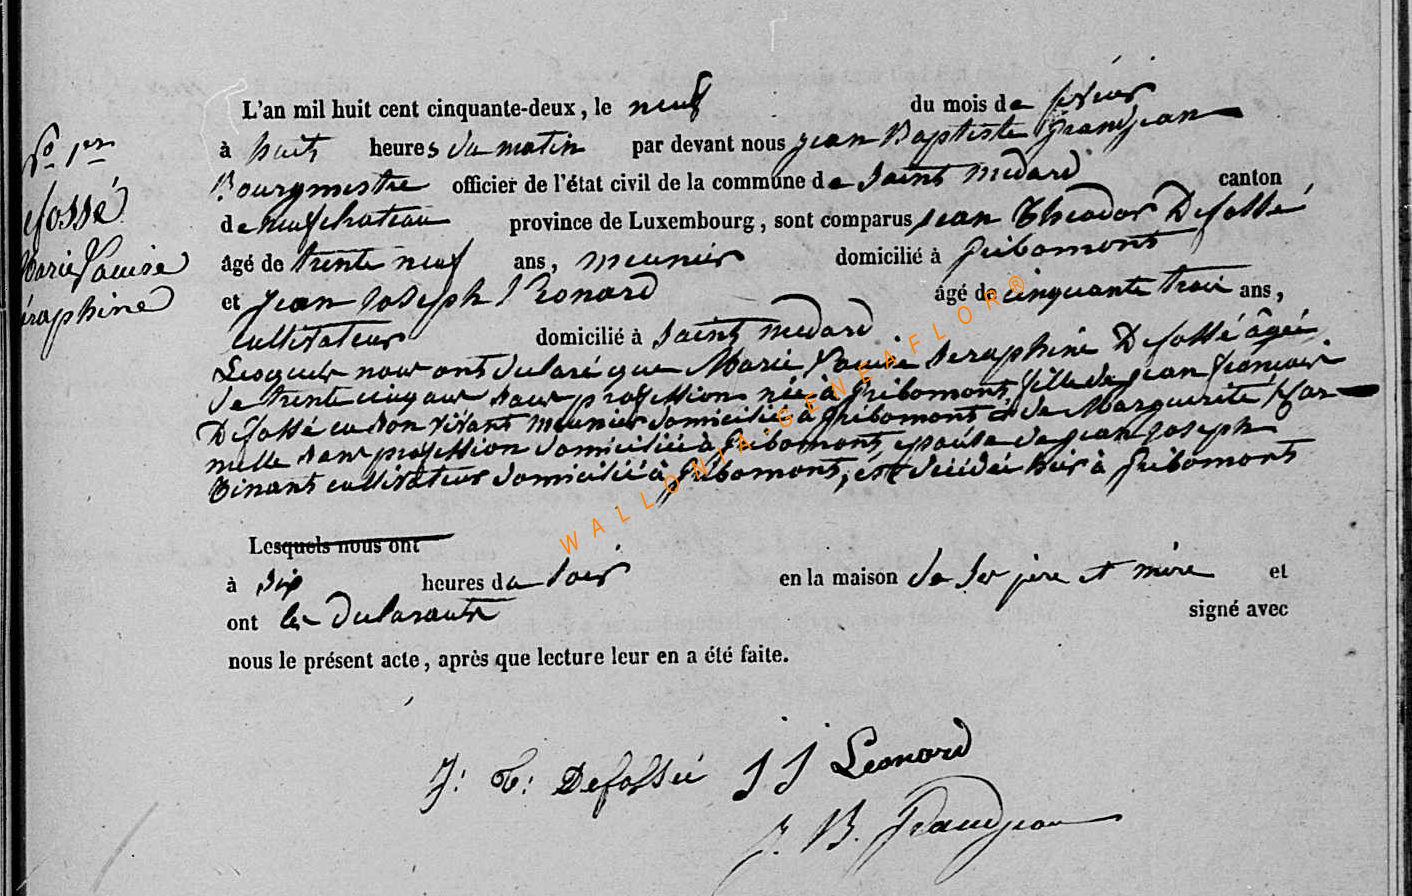 L'an mil huit cent cinquante-deux, le neuf du mois de février
à huit heures du matin par devant nous jean Baptiste Grandjean
Bourgmestre officier de l'état civil de la commune de Saint Medard canton
de neufchateau province de Luxembourg, sont comparus jean Theodor Defossé
âgé de trente neuf ans, meunier domicilié à gribomont
et jean joseph Leonard âgé de cinquante trois ans,
Cultivateur domicilié à Saint medard
Lesquels nous ont declaré que Marie Louise Seraphine Defossé âgée
de trente cinq ans sans profession née à gribomont, fille de jean francois
Defossé en son vivant meunier domicilié à gribomont et de Marguerite
sans profession domiciliée à gribomont, epouse de jean joseph
cultivateur domicilié à gribomont, est décédée hier à gribomont
Lesquels nous ont
à six heures du soir en la maison de ses père et mère et
ont les declarants signé avec
nous le présent acte, après que lecture leur en a été faite.
No 1er
fossé
Marie Louise
éraphine
J. T. Defossé J J Leonard
J. B. Grandjean
WALLONIA.GENEAFLOR®